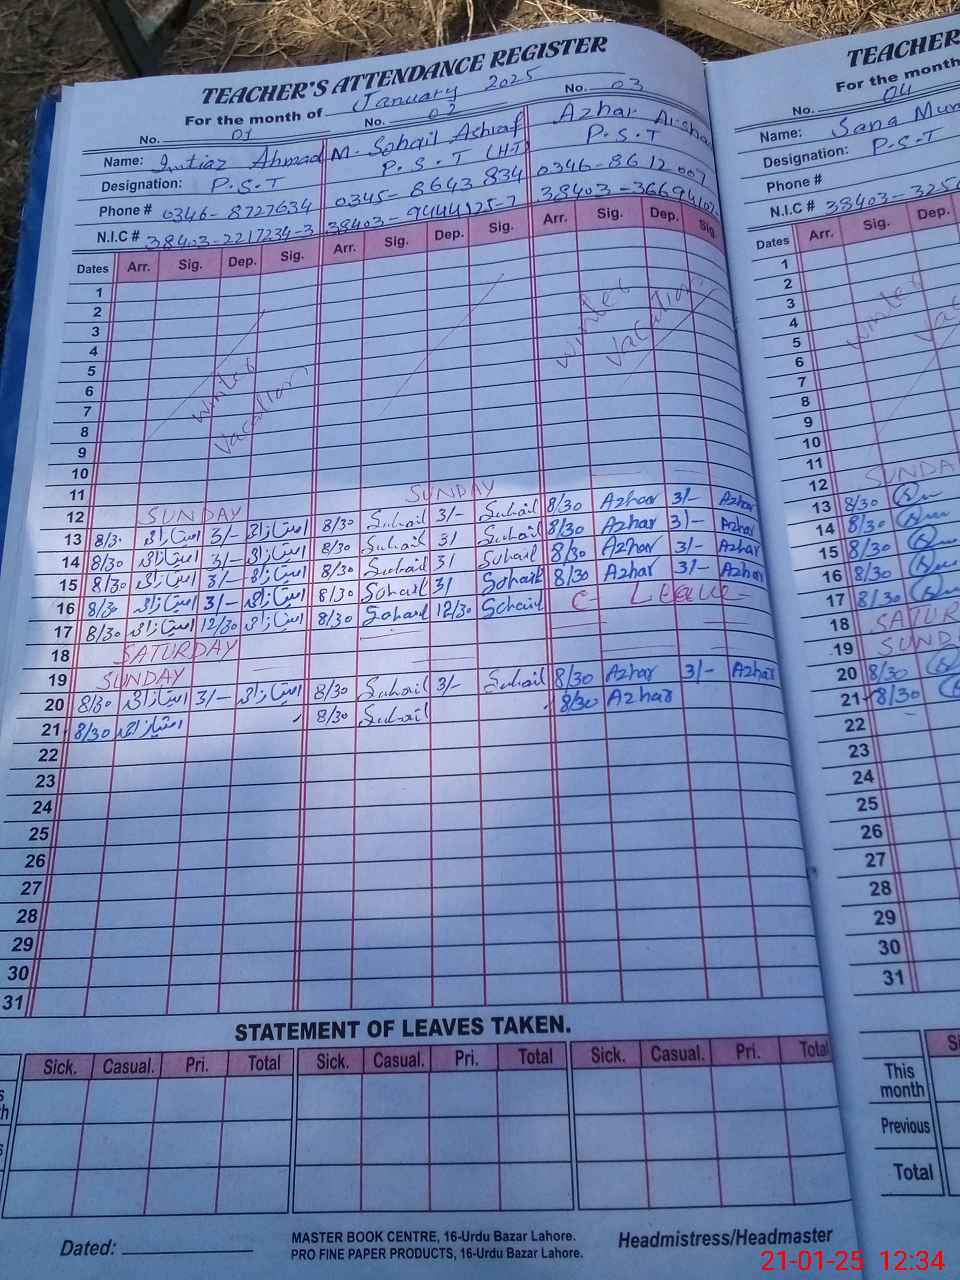 TEACHER'S ATTENDANCE REGISTER
For the month of January 2025
No. 01 No. 02 No. 03
Name: Imtiaz Ahmad M. Sohail Ashraf Azhar Arsha
Designation: P.S.T P.S.T (HT) P.S.T
Phone # 0346-8727634 0345-8643834 0346-8612007
N.I.C # 38403-2217234-3 38403-9444125-7
Dates Arr. Sig. Dep. Sig. Arr. Sig. Dep. Sig. Arr. Sig. Dep. Sig.
1
2
3
4
5
6
7
8
9
10
11
Winter Vacation
Winter Vacation
12 SUNDAY SUNDAY
13 8/30 3/- 8/30 Sohail 3/- Sohail 8/30 Azhar 3/- Azhar
14 8/30 3/- 8/30 Sohail 3/ Sohail 8/30 Azhar 3/- Azhar
15 8/30 3/- 8/30 Sohail 3/ Sohail 8/30 Azhar 3/- Azhar
16 8/30 3/- 8/30 Sohail 3/ Sohail 8/30 Azhar 3/- Azhar
17 8/30 12/30 8/30 Sohail 12/30 Sohail C- Leave-
18 SATURDAY
19 SUNDAY
20 8/30 3/- 8/30 Sohail 3/- Sohail 8/30 Azhar 3/- Azhar
21 8/30 8/30 Sohail 8/30 Azhar
22
23
24
25
26
27
28
29
30
31
STATEMENT OF LEAVES TAKEN.
Sick. Casual. Pri. Total Sick. Casual. Pri. Total Sick. Casual. Pri. Total
Dated:
MASTER BOOK CENTRE, 16-Urdu Bazar Lahore.
PRO FINE PAPER PRODUCTS, 16-Urdu Bazar Lahore.
Headmistress/Headmaster
TEACHER
For the month
No. 04
Name: Sana
Designation: P.S.T
Phone #
N.I.C # 38403-325
Dates Arr. Sig. Dep.
1
2
3
4
5
6
7
8
9
10
11
Winter
12 SUNDA
13 8/30
14 8/30
15 8/30
16 8/30
17 8/30
18 SATUR
19 SUND
20 8/30
21 8/30
22
23
24
25
26
27
28
29
30
31
This month
Previous
Total
21-01-25 12:34